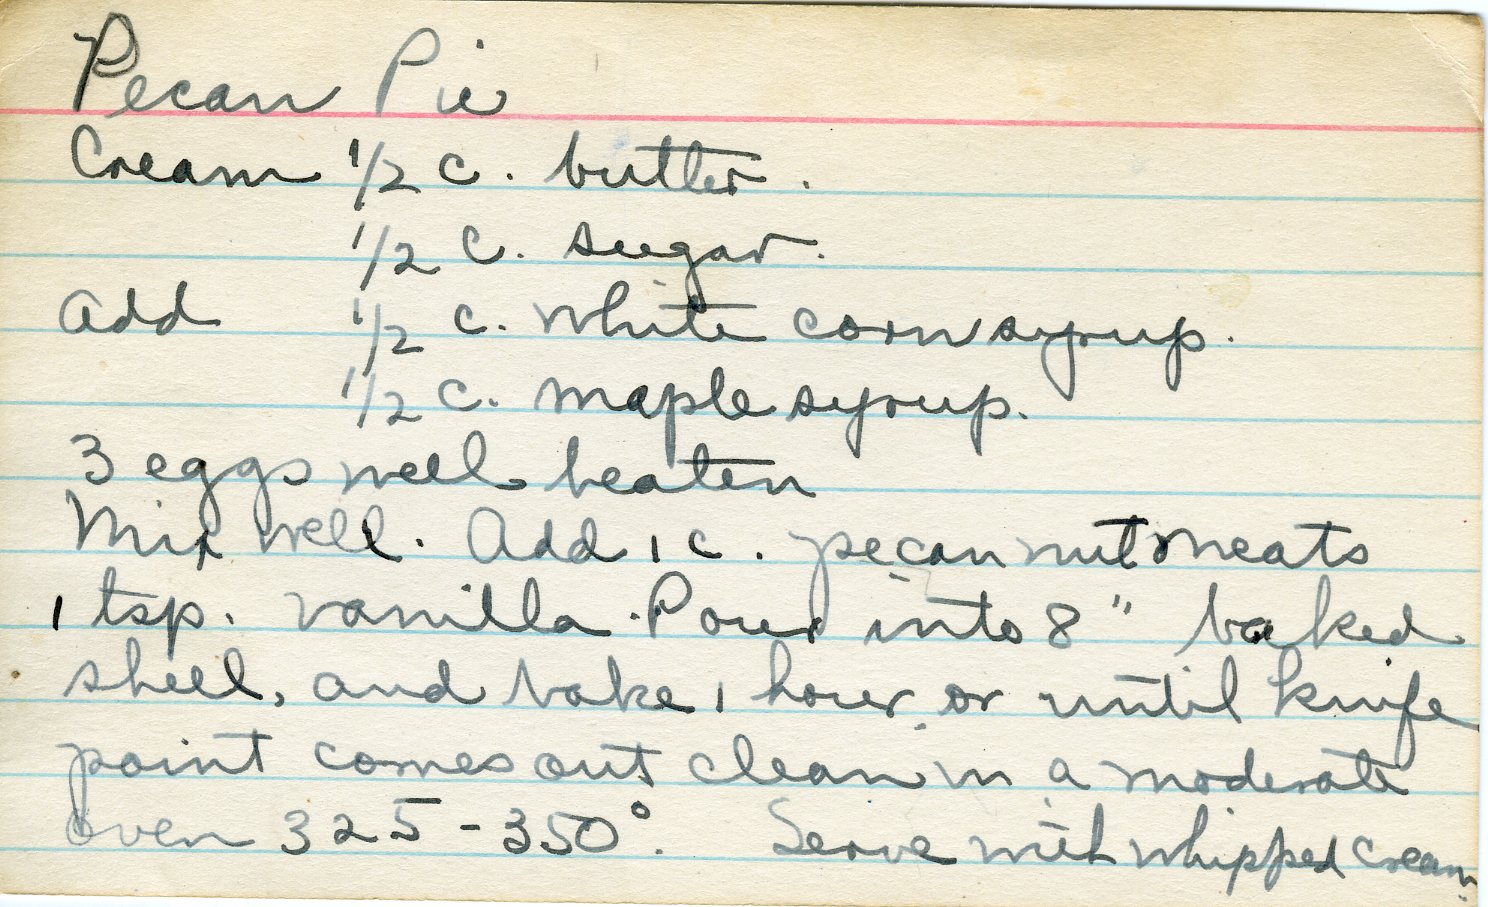 Pecan Pie
Cream 1/2 c. butter.
1/2 c. sugar.
Add 1/2 c. white corn syrup.
1/2 c. maple syrup.
3 eggs well beaten
Mix well. Add 1 c. pecan nutmeats
1 tsp. vanilla. Pour into 8" baked
shell, and bake 1 hour or until knife
point comes out clean in a moderate
oven 325-350°. Serve with whipped cream.